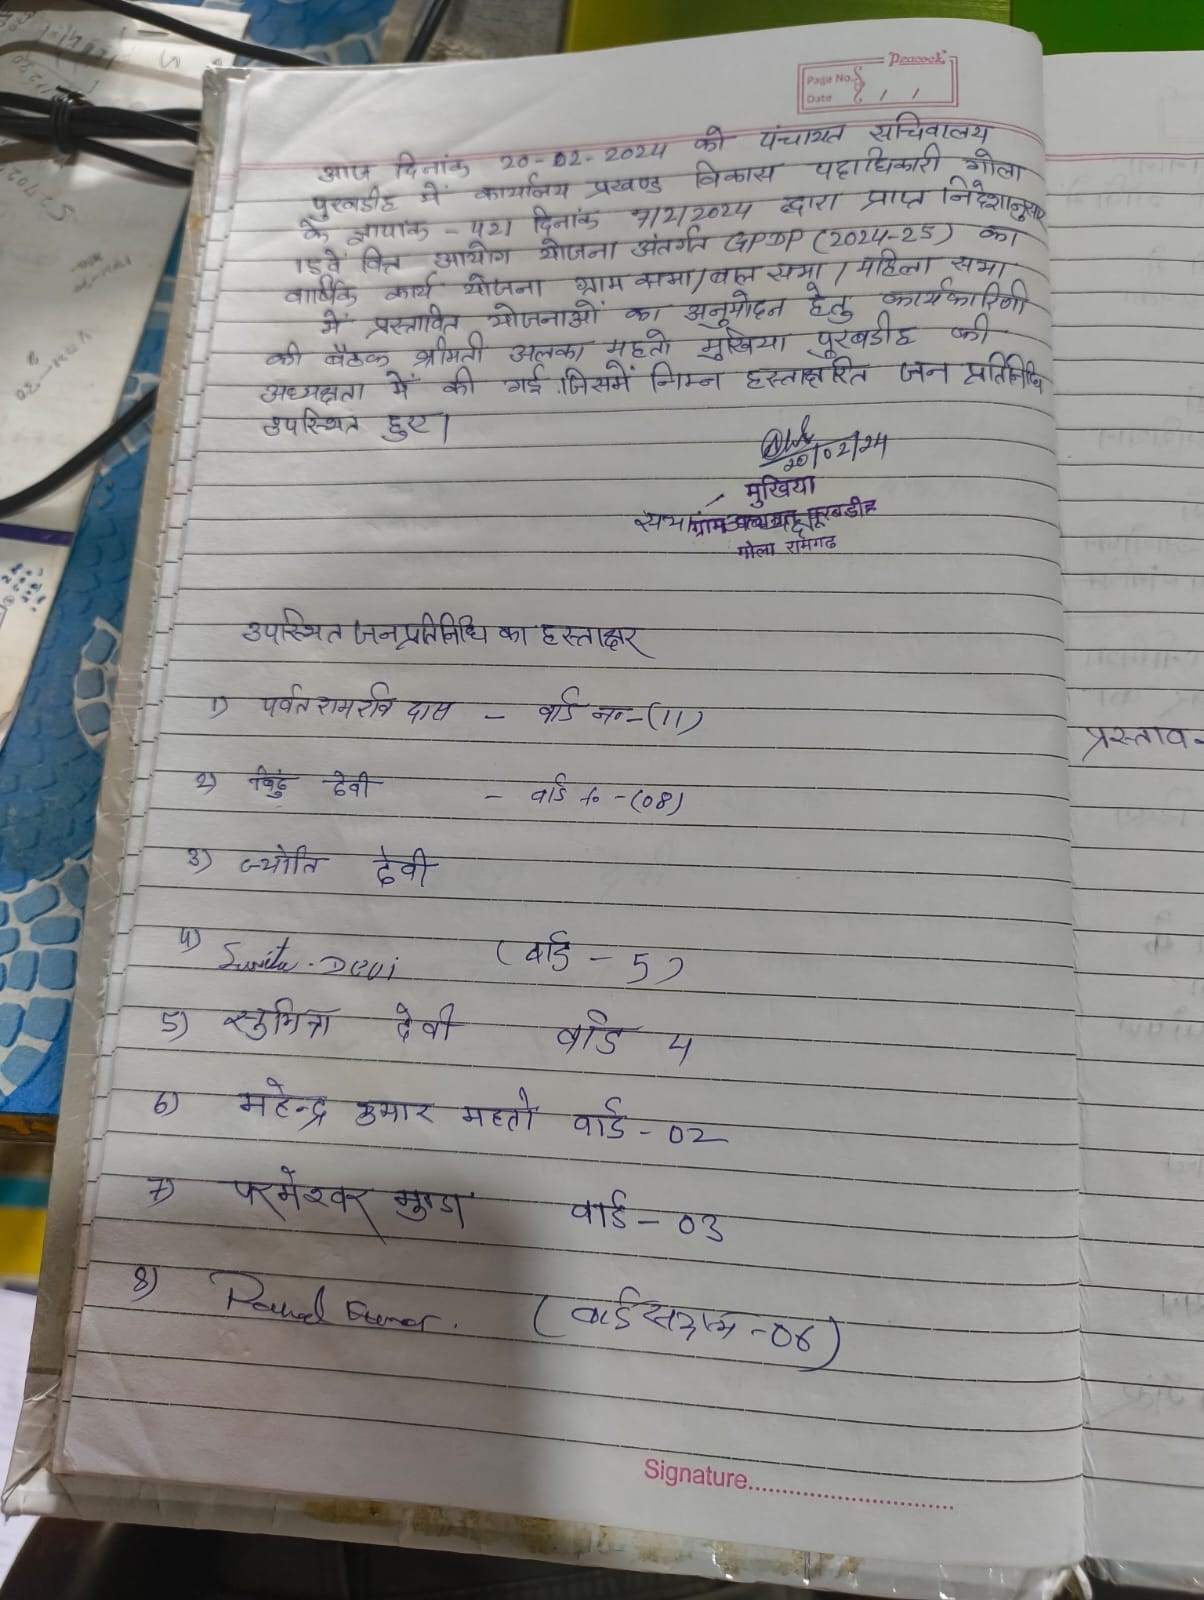 Peacock
Page No.
Date
आज दिनांक 20-02-2024 को पंचायत सचिवालय
पुरबडीह में कार्यालय प्रखण्ड विकास पदाधिकारी गोला
के ज्ञापांक - 421 दिनांक 7/2/2024 द्वारा प्राप्त निदेशानुसार
15वें वित्त आयोग योजना अंतर्गत GPDP (2024-25) का
वार्षिक कार्य योजना ग्राम सभा/बाल सभा / महिला सभा
में प्रस्तावित योजनाओं का अनुमोदन हेतु कार्यकारिणी
की बैठक श्रीमती अलका महतो मुखिया पुरबडीह की
अध्यक्षता में की गई जिसमें निम्न हस्ताक्षरित जन प्रतिनिधि
उपस्थित हुए।
20/02/24
मुखिया
ग्राम पूरबडीह
गोला रामगढ़
उपस्थित जनप्रतिनिधि का हस्ताक्षर
1) पर्वत राम रवि दास - वार्ड न०-(11)
2) बिंदु देवी - वार्ड न० -(08)
3) ज्योति देवी
4) Sunita Devi (वार्ड - 5)
5) सुमित्रा देवी वार्ड 4
6) महेन्द्र कुमार महतो वार्ड - 02
7) परमेश्वर मुण्डा वार्ड - 03
8) Kumar. (वार्ड सदस्य -06)
प्रस्ताव-
Signature